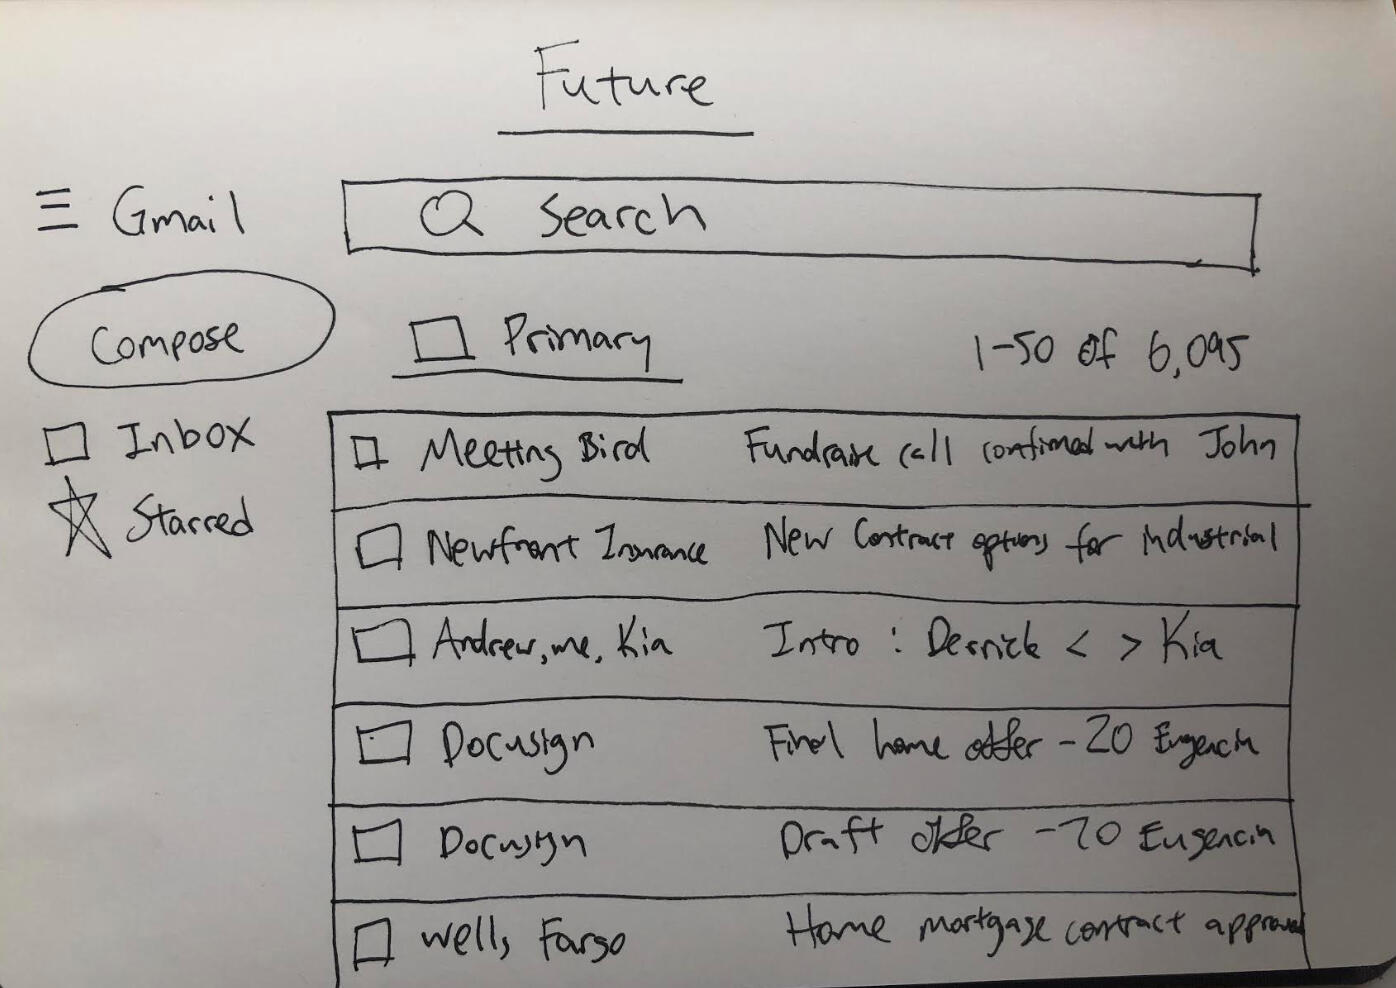 Future
Gmail
Search
Compose
Primary
1-50 of 6,095
Inbox
Starred
Meeting Bird Fundraise call confirmed with John
Newfront Insurance New Contract options for industrial
Andrew, me, Kia Intro : Derrick < > Kia
Docusign Final home offer - 20 Eugencia
Docusign Draft offer - 20 Eugencia
Wells Fargo Home mortgage contract approved